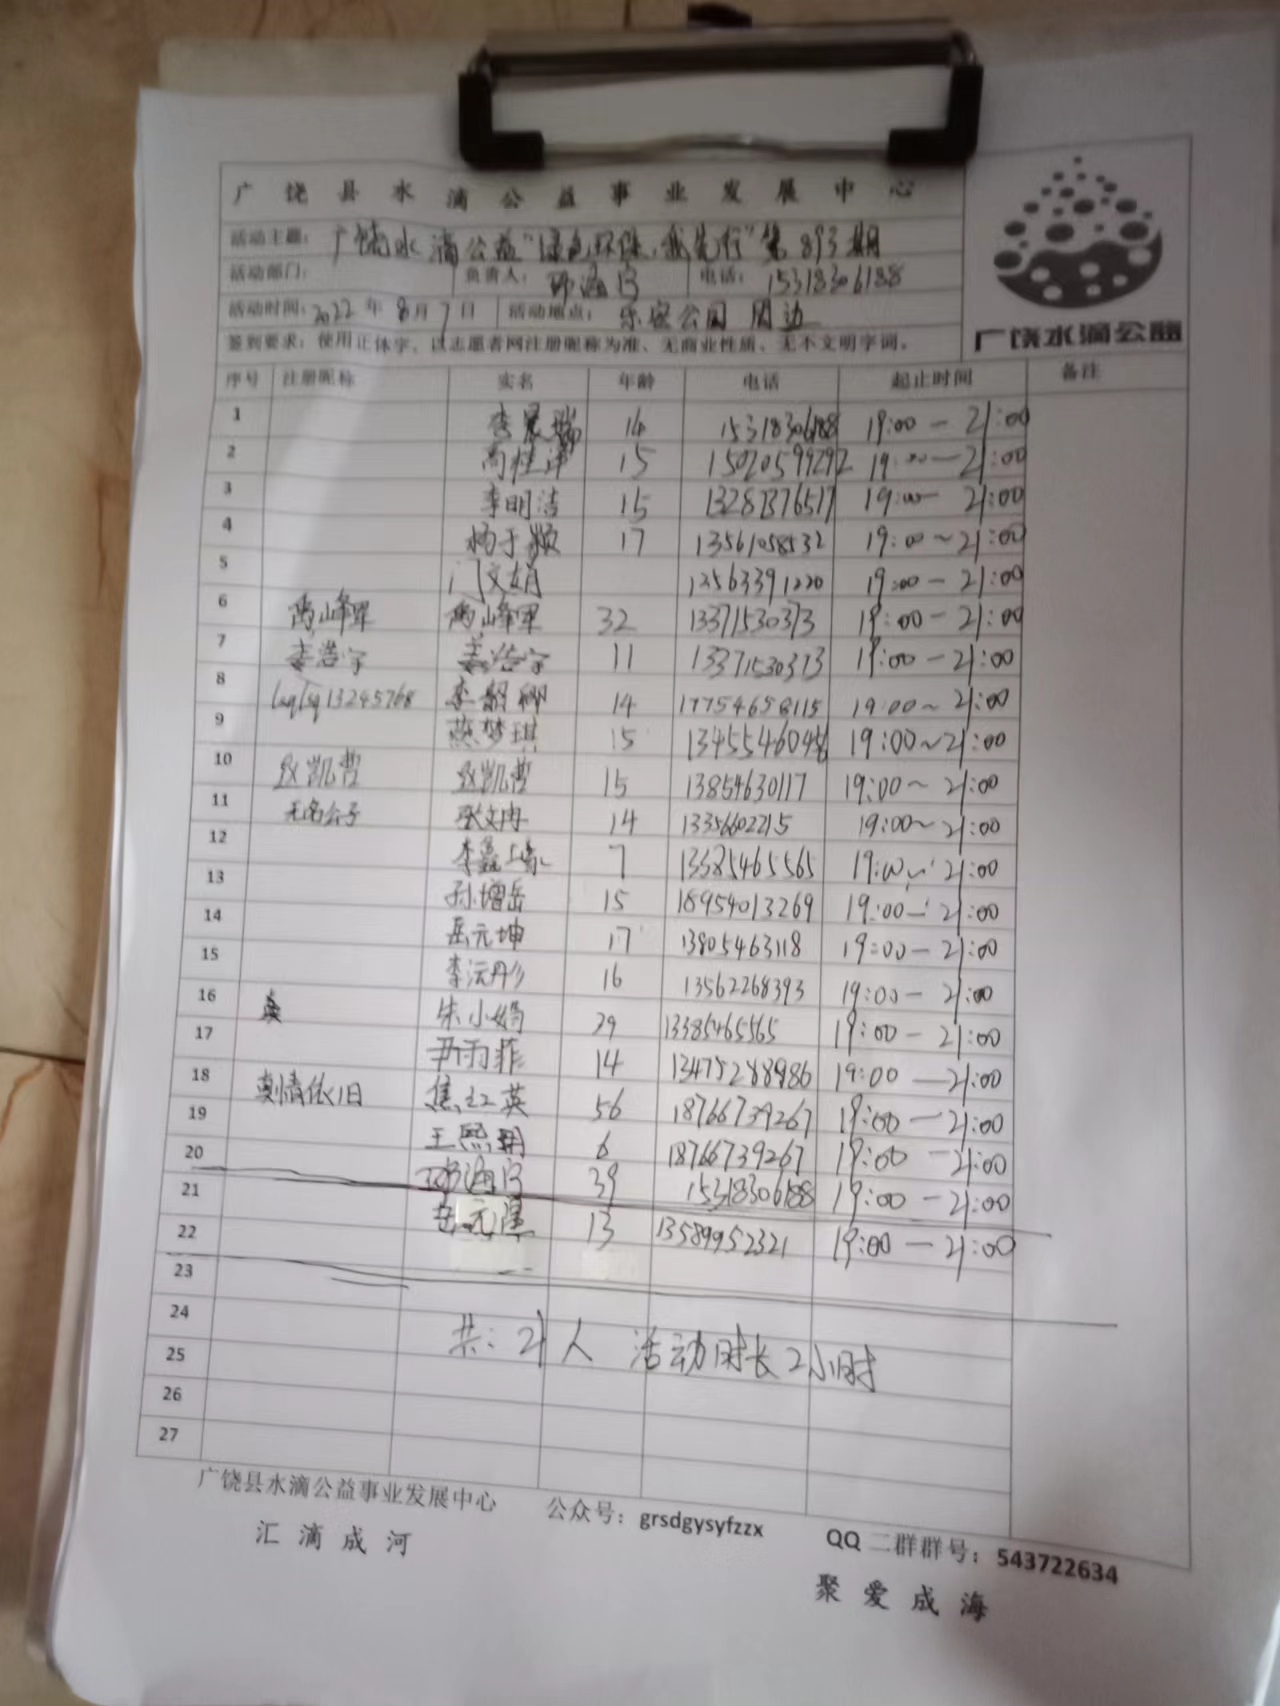 广饶县水滴公益事业发展中心
活动主题: 广饶水滴公益"绿色环保,我先行"第893期
活动部门: 负责人: 邓海宁 电话: 15318306188
活动时间: 2022年8月7日 活动地点: 乐安公园 周边
签到要求: 使用正体字, 以志愿者网注册昵称为准、无商业性质、无不文明字词。
广饶水滴公益
序号 注册昵称 实名 年龄 电话 起止时间 备注
1 李晨瑞 14 15318306188 19:00-21:00
2 15 15020599292 19:00-21:00
3 李明洁 15 13281376517 19:00- 21:00
4 杨于颖 17 13561058532 19:00~21:00
5 门文娟 12563391220 19:00-21:00
6 禹山峰军 禹山峰军 32 13371530373 19:00-21:00
7 姜浩宇 姜浩宇 11 13371530373 19:00-21:00
8 14 17754658115 19:00~21:00
9 燕梦琪 15 13455460456 19:00~21:00
10 赵凯哲 赵凯哲 15 13854630117 19:00~21:00
11 无名公子 张文冉 14 13356602215 19:00~21:00
12 7 13385465565 19:00~21:00
13 孙增岳 15 18954013269 19:00-21:00
14 岳元坤 17 13805463118 19:00-21:00
15 李沅彤 16 13562268393 19:00-21:00
16 朱小娟 29 13385465565 19:00-21:00
17 尹雨菲 14 13475288986 19:00—21:00
18 真情依旧 焦红英 56 18766739267 19:00-21:00
19 王熙玥 6 18766739267 19:00-21:00
20 邓海宁 39 15318306188 19:00-21:00
21 岳元隆 13 13589952321 19:00-21:00
22
23
24
共: 21人 活动时长2小时
25
26
27
广饶县水滴公益事业发展中心 公众号: grsdgysyfzzx QQ二群群号: 543722634
汇滴成河 聚爱成海